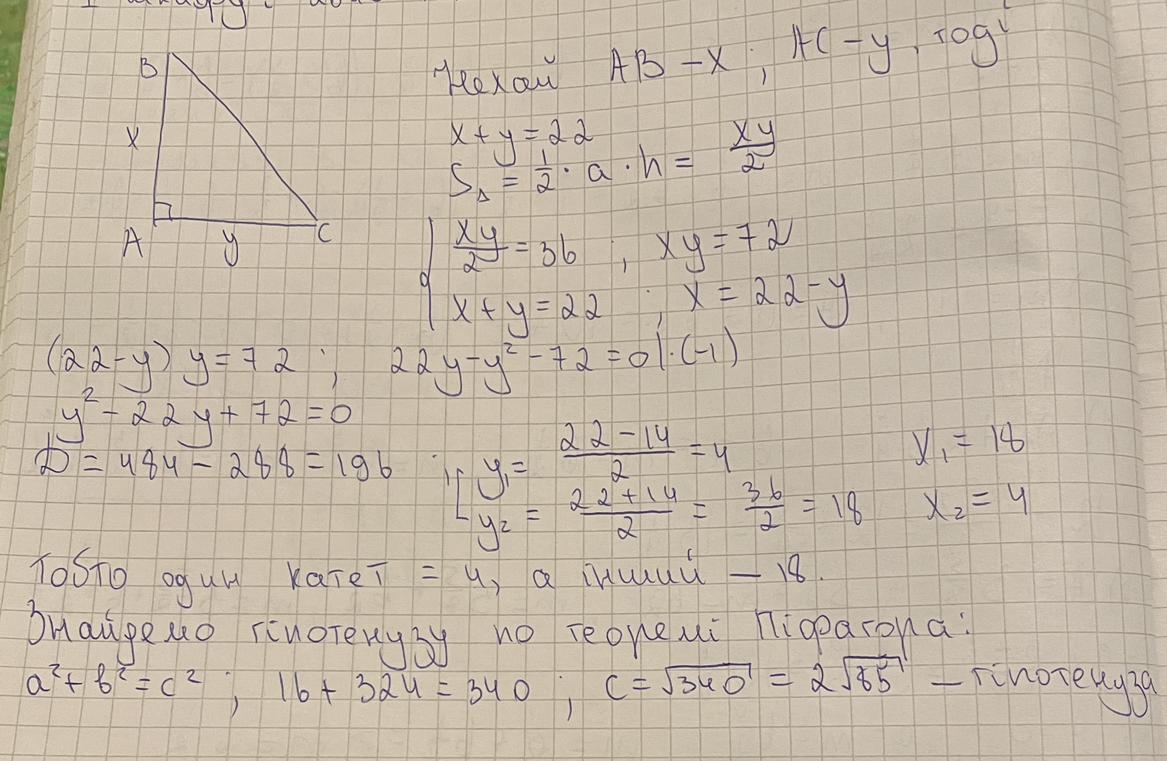 B
x
A
y
C
Нехай AB – x ; AC – y, тоді
x + y = 22
S△ = 1/2 · a · h = xy/2
{ xy/2 = 36 ; xy = 72
x + y = 22 ; x = 22 - y
(22 - y) y = 72 ; 22y - y² - 72 = 0 | · (-1)
y² - 22y + 72 = 0
D = 484 - 288 = 196 ; [ y₁ = (22 - 14)/2 = 4 x₁ = 18
y₂ = (22 + 14)/2 = 36/2 = 18 x₂ = 4
Тобто один катет = 4, а інший – 18.
Знайдемо гіпотенузу по теоремі Піфагора:
a² + b² = c² ; 16 + 324 = 340 ; c = √340 = 2√85 – гіпотенуза